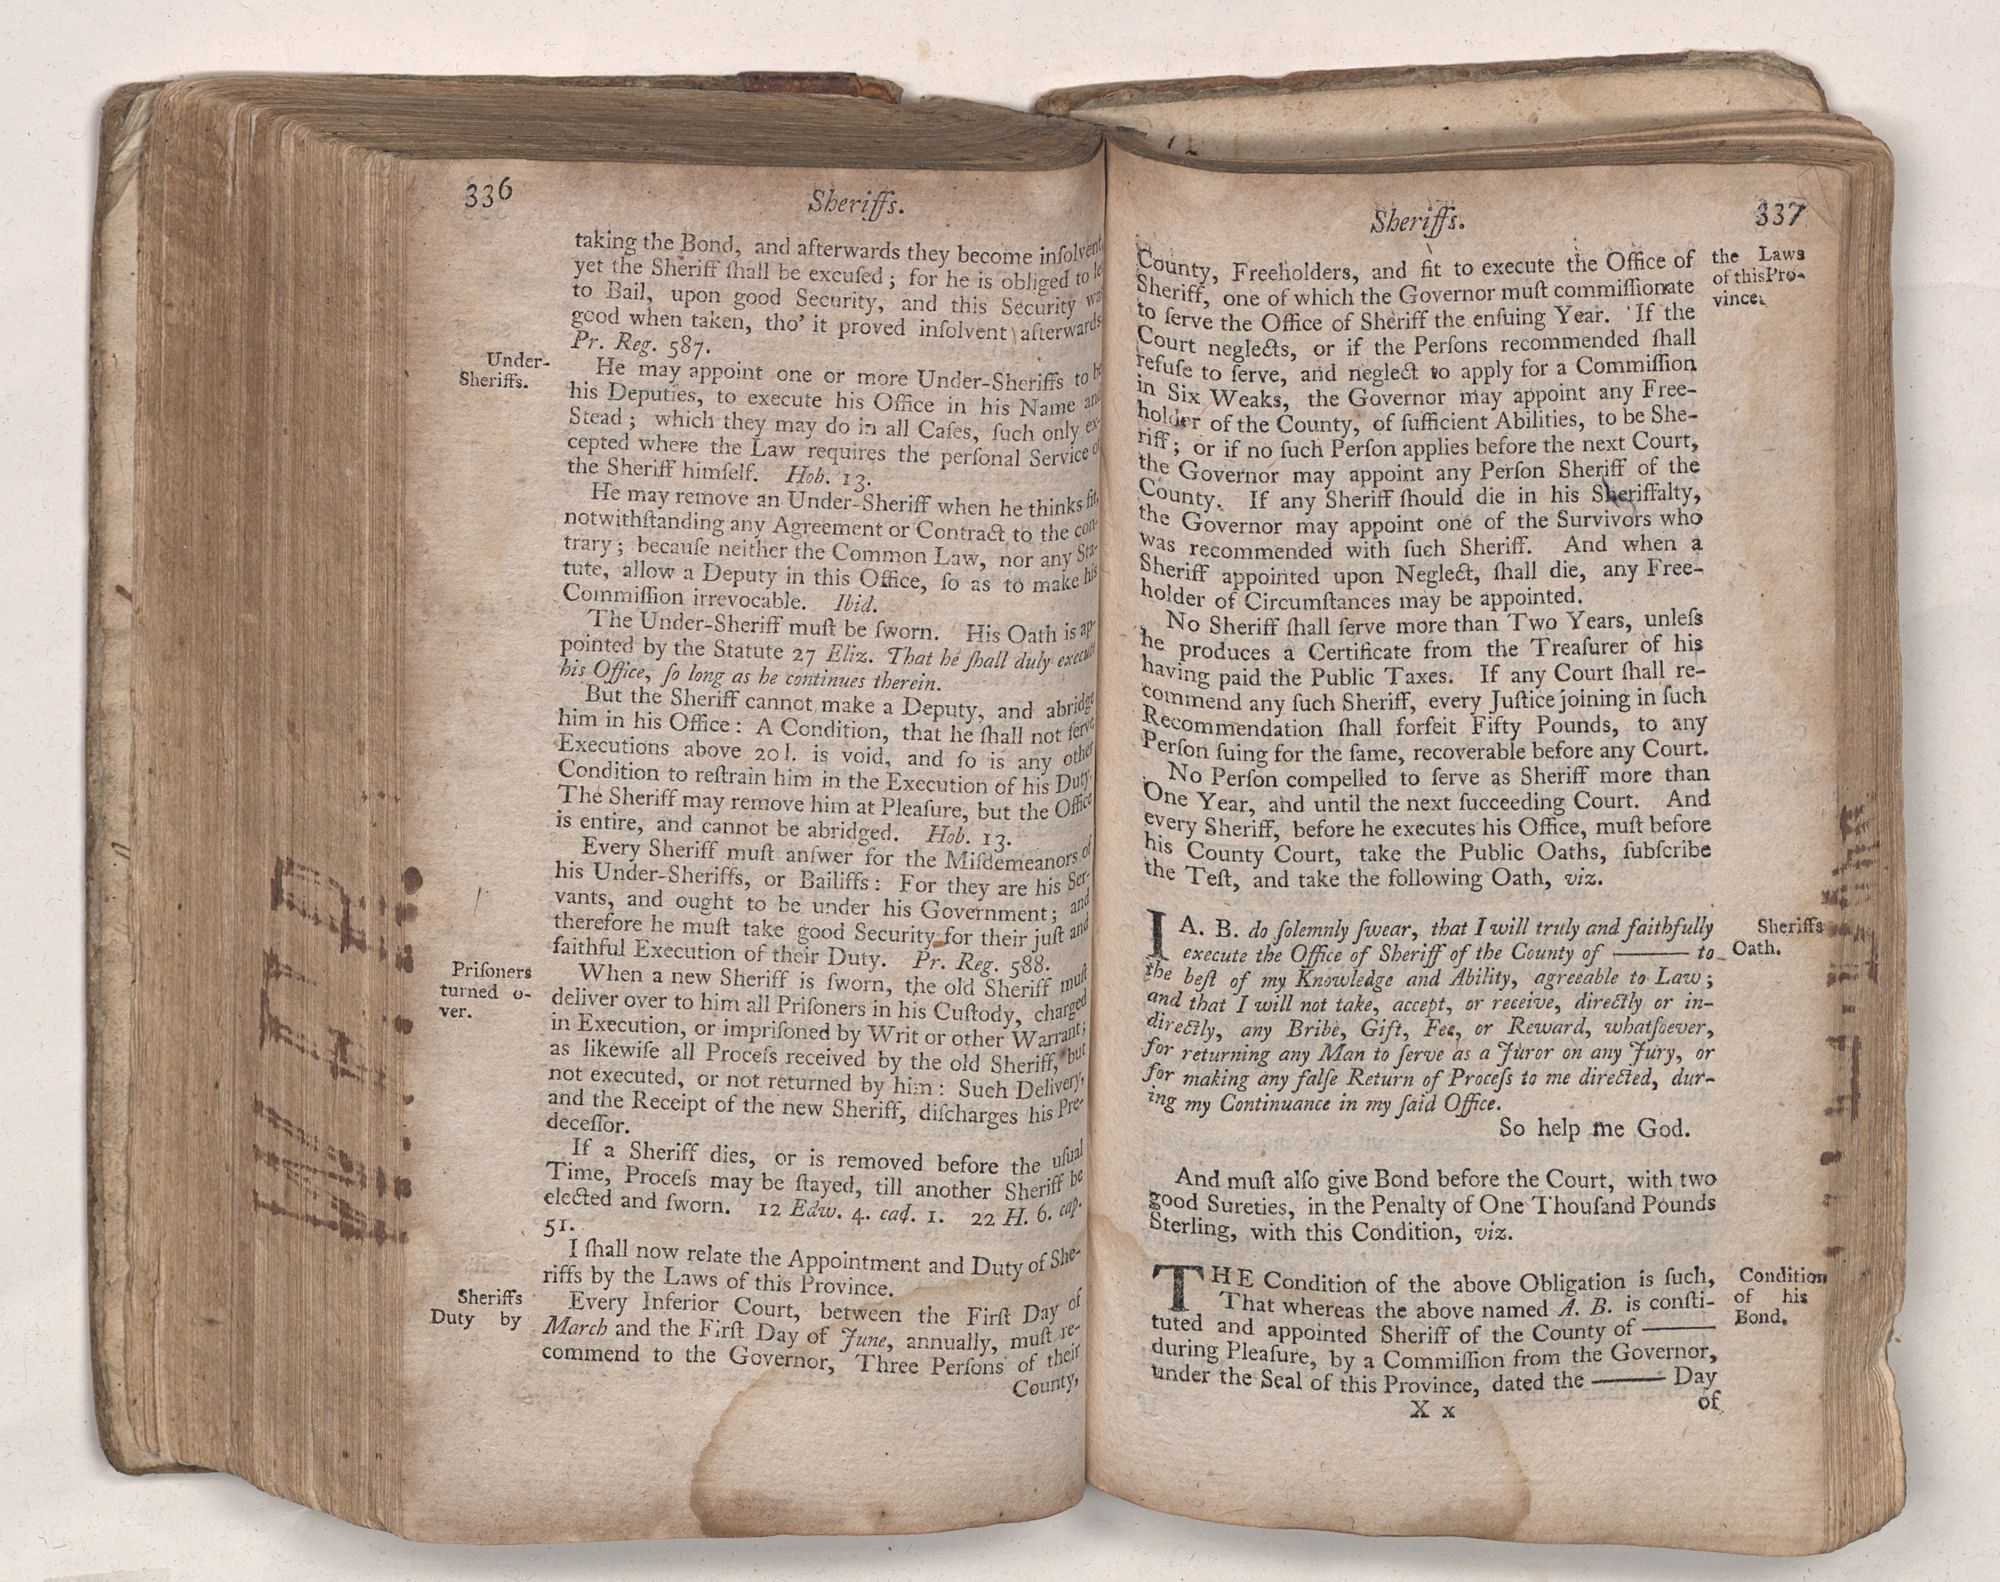 336
Sheriffs.
taking the Bond, and afterwards they become inſolvent
yet the Sheriff ſhall be excuſed; for he is obliged to le
to Bail, upon good Security, and this Security wa
good when taken, tho' it proved inſolvent afterwards
Pr. Reg. 587.
Under-
Sheriffs.
He may appoint one or more Under-Sheriffs to be
his Deputies, to execute his Office in his Name and
Stead; which they may do in all Caſes, ſuch only ex-
cepted where the Law requires the perſonal Service of
the Sheriff himſelf. Hob. 13.
He may remove an Under-Sheriff when he thinks fit,
notwithſtanding any Agreement or Contract to the con-
trary; becauſe neither the Common Law, nor any Sta-
tute, allow a Deputy in this Office, ſo as to make his
Commiſſion irrevocable. Ibid.
The Under-Sheriff muſt be ſworn. His Oath is ap-
pointed by the Statute 27 Eliz. That he ſhall duly execute
his Office, ſo long as he continues therein.
But the Sheriff cannot make a Deputy, and abridge
him in his Office: A Condition, that he ſhall not ſerve
Executions above 20 l. is void, and ſo is any other
Condition to reſtrain him in the Execution of his Duty.
The Sheriff may remove him at Pleaſure, but the Office
is entire, and cannot be abridged. Hob. 13.
Every Sheriff muſt anſwer for the Miſdemeanors of
his Under-Sheriffs, or Bailiffs: For they are his Ser-
vants, and ought to be under his Government; and
therefore he muſt take good Security for their juſt and
faithful Execution of their Duty. Pr. Reg. 588.
Priſoners
turned o-
ver.
When a new Sheriff is ſworn, the old Sheriff muſt
deliver over to him all Priſoners in his Cuſtody, charged
in Execution, or impriſoned by Writ or other Warrant;
as likewiſe all Proceſs received by the old Sheriff, but
not executed, or not returned by him: Such Delivery,
and the Receipt of the new Sheriff, diſcharges his Pre-
deceſſor.
If a Sheriff dies, or is removed before the uſual
Time, Proceſs may be ſtayed, till another Sheriff be
elected and ſworn. 12 Edw. 4. cap. 1. 22 H. 6. cap.
51.
I ſhall now relate the Appointment and Duty of She-
riffs by the Laws of this Province.
Sheriffs
Duty by
Every Inferior Court, between the Firſt Day of
March and the Firſt Day of June, annually, muſt re-
commend to the Governor, Three Perſons of their
County,
Sheriffs.
337
County, Freeholders, and fit to execute the Office of
Sheriff, one of which the Governor muſt commiſſionate
to ſerve the Office of Sheriff the enſuing Year. If the
Court neglects, or if the Perſons recommended ſhall
refuſe to ſerve, and neglect to apply for a Commiſſion
in Six Weaks, the Governor may appoint any Free-
holder of the County, of ſufficient Abilities, to be She-
riff; or if no ſuch Perſon applies before the next Court,
the Governor may appoint any Perſon Sheriff of the
County. If any Sheriff ſhould die in his Sheriffalty,
the Governor may appoint one of the Survivors who
was recommended with ſuch Sheriff. And when a
Sheriff appointed upon Neglect, ſhall die, any Free-
holder of Circumſtances may be appointed.
the Laws
of this Pro-
vince.
No Sheriff ſhall ſerve more than Two Years, unleſs
he produces a Certificate from the Treaſurer of his
having paid the Public Taxes. If any Court ſhall re-
commend any ſuch Sheriff, every Juſtice joining in ſuch
Recommendation ſhall forfeit Fifty Pounds, to any
Perſon ſuing for the ſame, recoverable before any Court.
No Perſon compelled to ſerve as Sheriff more than
One Year, and until the next ſucceeding Court. And
every Sheriff, before he executes his Office, muſt before
his County Court, take the Public Oaths, ſubſcribe
the Teſt, and take the following Oath, viz.
I A. B. do ſolemnly ſwear, that I will truly and faithfully
execute the Office of Sheriff of the County of —— to
the beſt of my Knowledge and Ability, agreeable to Law;
and that I will not take, accept, or receive, directly or in-
directly, any Bribe, Gift, Fee, or Reward, whatſoever,
for returning any Man to ſerve as a Juror on any Jury, or
for making any falſe Return of Proceſs to me directed, dur-
ing my Continuance in my ſaid Office.
So help me God.
Sheriffs
Oath.
And muſt alſo give Bond before the Court, with two
good Sureties, in the Penalty of One Thouſand Pounds
Sterling, with this Condition, viz.
THE Condition of the above Obligation is ſuch,
That whereas the above named A. B. is conſti-
tuted and appointed Sheriff of the County of ——
during Pleaſure, by a Commiſſion from the Governor,
under the Seal of this Province, dated the —— Day
Condition
of his
Bond.
X x
of